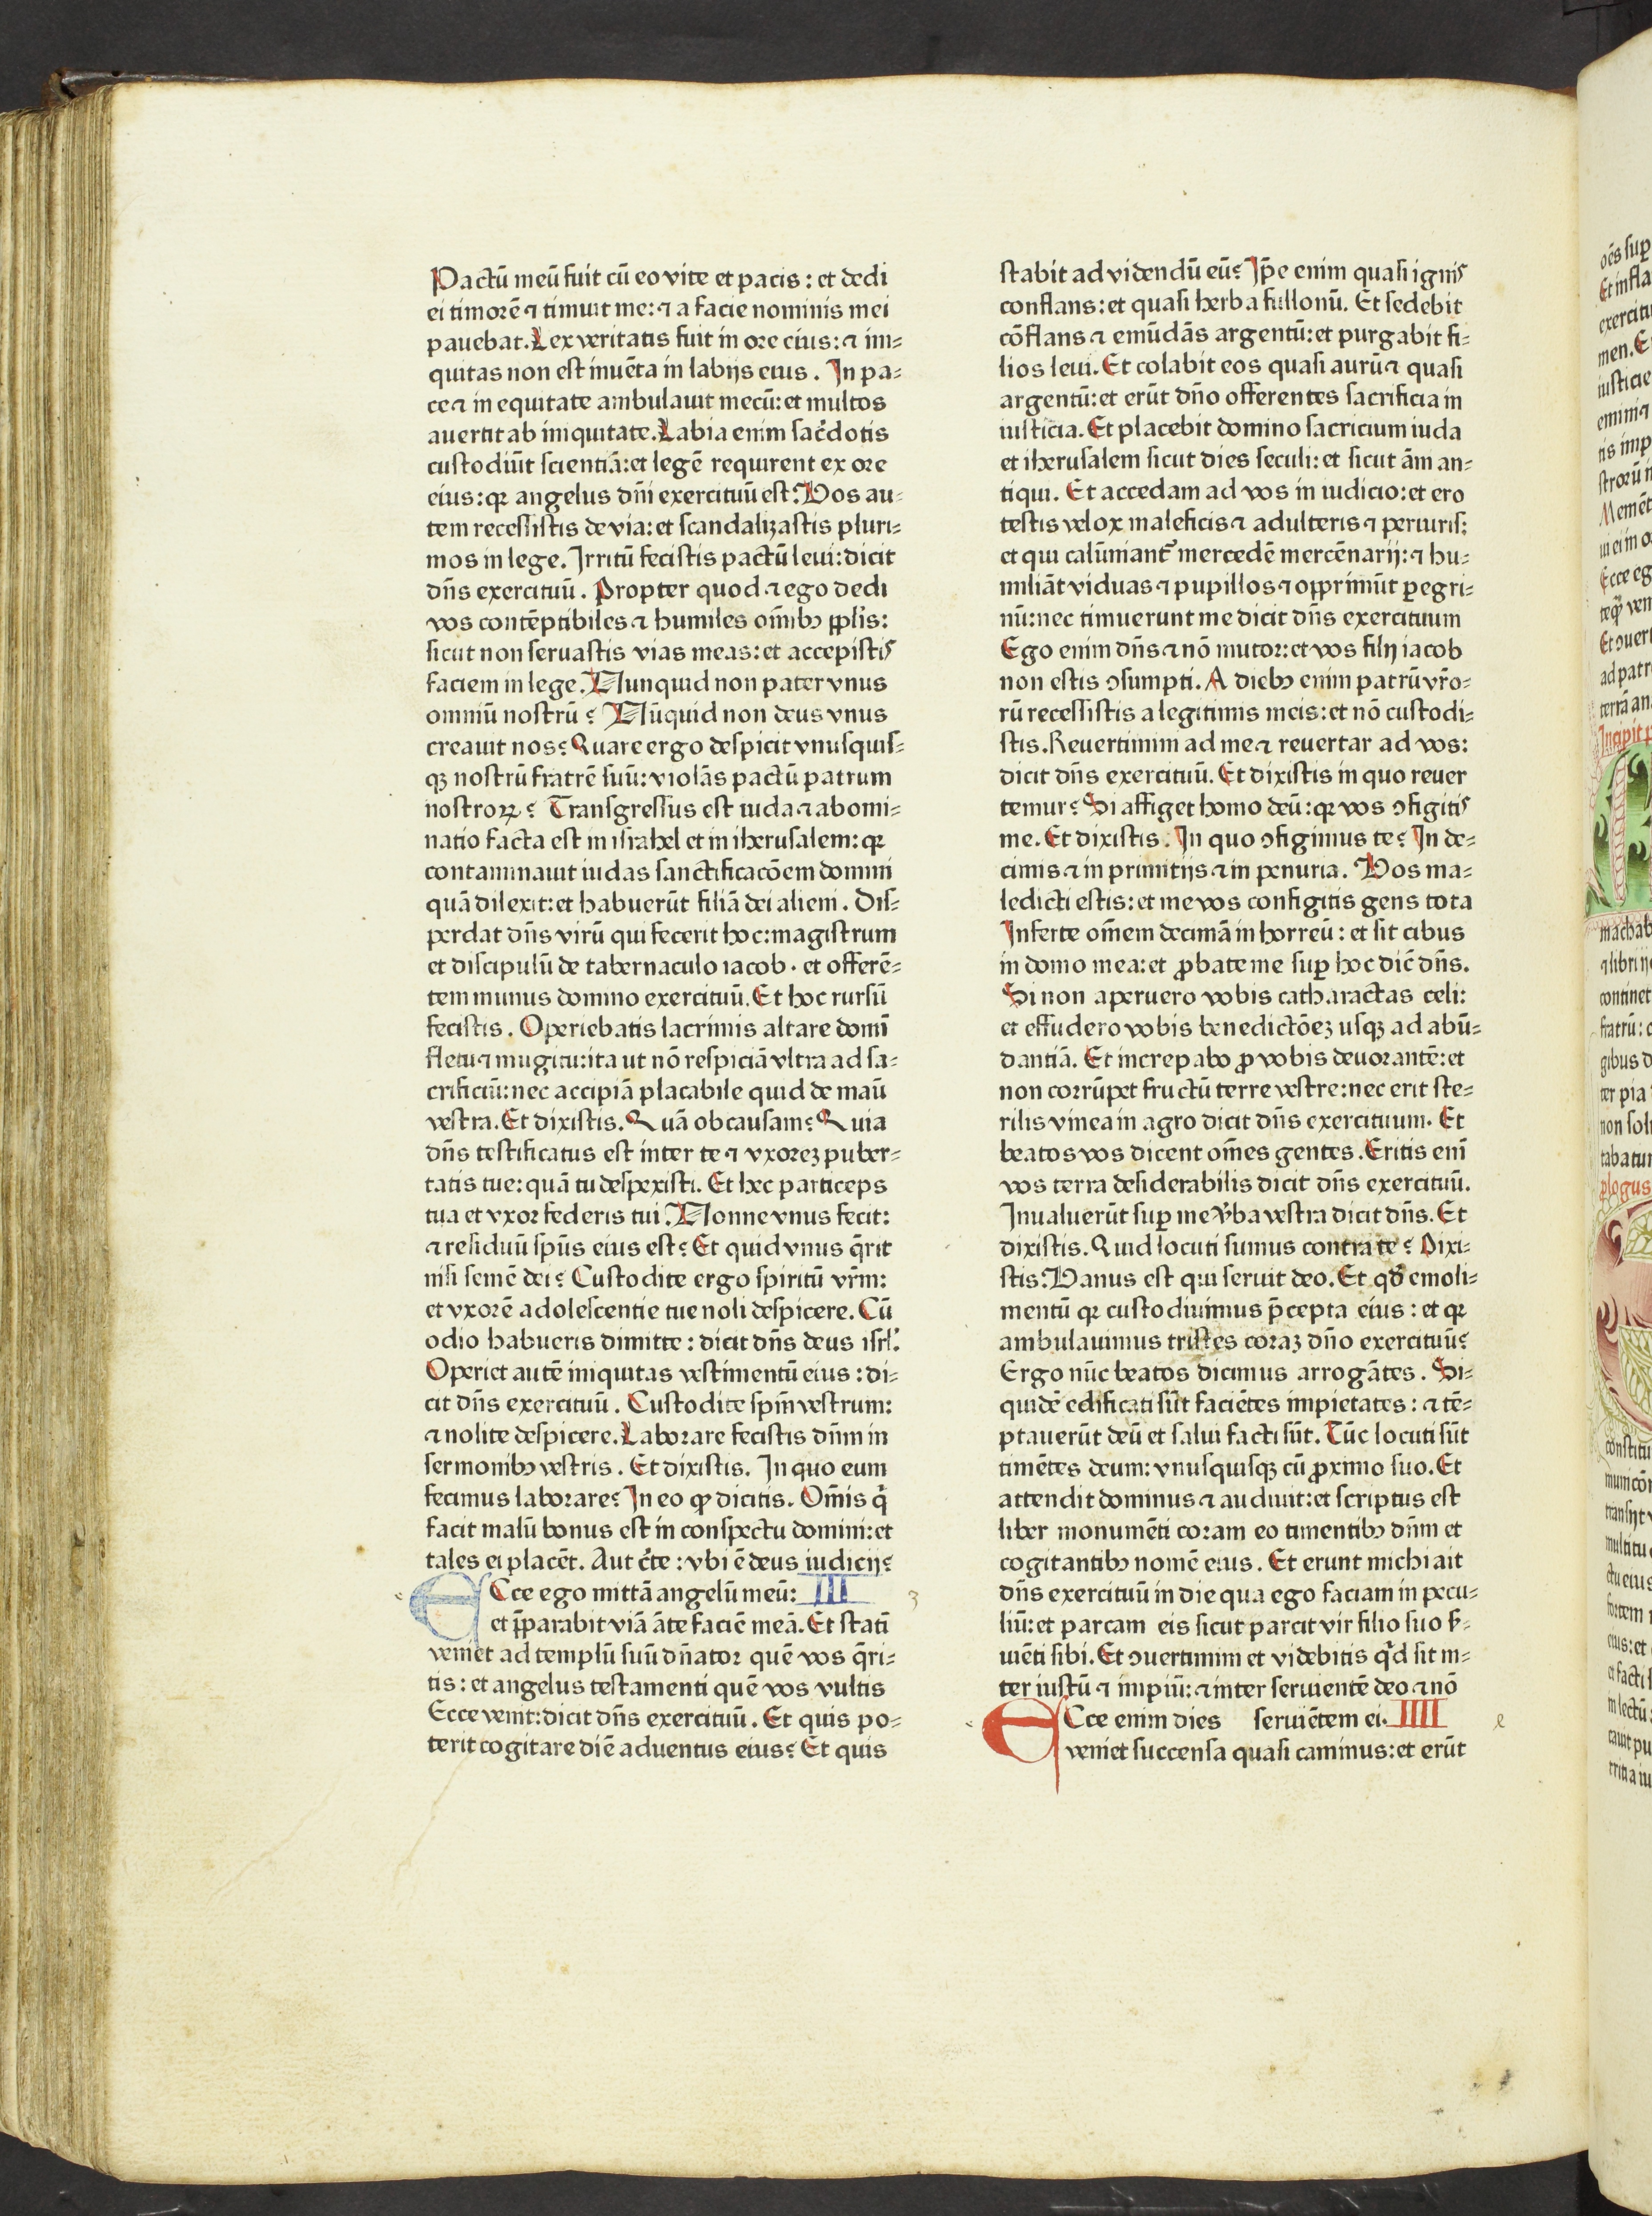 Pactū meū fuit cū eo vite et pacis : et dedi
ei timorē ⁊ timuit me: ⁊ a facie nominis mei
pauebat. Lex veritatis fuit in ore eius: ⁊ ini⸗
quitas non est inuēta in labijs eius . In pa⸗
ce ⁊ in equitate ambulauit mecū: et multos
auertit ab iniquitate. Labia enim sac̄dotis
custodiūt scientiā: et legē requirent ex ore
eius: qꝛ angelus dn̄i exercituū est. Vos au⸗
tem recessistis de via: et scandalizastis pluri⸗
mos in lege. Irritū fecistis pactū leui: dicit
dn̄s exercituū . Propter quod ⁊ ego dedi
vos contēptibiles ⁊ humiles om̄ibꝫ ppl̄is:
sicut non seruastis vias meas: et accepistis
faciem in lege. Nunquid non pater vnus
omniū nostrū ? Nūquid non deus vnus
creauit nos? Quare ergo despicit vnusquis⸗
qꝫ nostrū fratrē suū: violās pactū patrum
nostroꝝ ? Transgressus est iuda ⁊ abomi⸗
natio facta est in israhel et in iherusalem: qꝛ
contaminauit iudas sanctificacōem domini
quā dilexit: et habuerūt filiā dei alieni . Dis⸗
perdat dn̄s virū qui fecerit hoc: magistrum
et discipulū de tabernaculo iacob . et offerē⸗
tem munus domino exercituū. Et hoc rursū
fecistis . Operiebatis lacrimis altare domī
fletu ⁊ mugitu: ita ut nō respiciā vltra ad sa⸗
crificiū: nec accipiā placabile quid de maū
vestra. Et dixistis. Quā ob causam? Quia
dn̄s testificatus est inter te ⁊ vxoreꝫ puber⸗
tatis tue: quā tu despexisti. Et hec particeps
tua et vxor federis tui . Nonne vnus fecit:
⁊ residuū spūs eius est? Et quid vnus q̄rit
nisi semē dei ? Custodite ergo spiritū vr̄m:
et vxorē adolescentie tue noli despicere. Cū
odio habueris dimitte : dicit dn̄s deus isrl̄.
Operiet autē iniquitas vestimentū eius : di⸗
cit dn̄s exercituū . Custodite spm̄ vestrum:
⁊ nolite despicere. Laborare fecistis dn̄m in
sermonibꝫ vestris . Et dixistis. In quo eum
fecimus laborare? In eo ꝙ dicitis. Om̄is q̄
facit malū bonus est in conspectu domini: et
tales ei placēt. Aut c̄te : vbi ē deus iudicij?
ECce ego mittā angelū meū: III 3
et p̄parabit viā āte faciē meā. Et statī
veniet ad templū suū dn̄ator quē vos q̄ri⸗
tis : et angelus testamenti quē vos vultis
Ecce venit: dicit dn̄s exercituū . Et quis po⸗
terit cogitare diē aduentus eius? Et quis
stabit ad videndū eū? Ip̄e enim quasi ignis
conflans: et quasi herba fullonū. Et sedebit
cōflans ⁊ emūdās argentū: et purgabit fi⸗
lios leui. Et colabit eos quasi aurū ⁊ quasi
argentū: et erūt dn̄o offerentes sacrificia in
iusticia. Et placebit domino sacricium iuda
et iherusalem sicut dies seculi: et sicut ām an⸗
tiqui . Et accedam ad vos in iudicio: et ero
testis velox maleficis ⁊ adulteris ⁊ periuris:
et qui calūniant᷑ mercedē mercēnarij: ⁊ hu⸗
miliāt viduas ⁊ pupillos ⁊ opprimūt ꝑegri⸗
nū: nec timuerunt me dicit dn̄s exercituum
Ego enim dn̄s ⁊ nō mutor: et vos filij iacob
non estis ↄsumpti. A diebꝫ enim patrū vr̄o⸗
rū recessistis a legitimis meis: et nō custodi⸗
stis. Reuertimini ad me ⁊ reuertar ad vos:
dicit dn̄s exercituū. Et dixistis in quo reuer
temur? Si affiget homo deū: qꝛ vos ↄfigitis
me. Et dixistis . In quo ↄfigimus te? In de⸗
cimis ⁊ in primitijs ⁊ in penuria. Vos ma⸗
ledicti estis: et me vos configitis gens tota
Inferte om̄em decimā in horreū : et sit cibus
in domo mea: et ꝓbate me suꝑ hoc dic̄ dn̄s.
Si non aperuero vobis catharactas celi:
et effudero vobis benedictōeꝫ usqꝫ ad abū⸗
dantiā. Et increpabo ꝓ vobis deuorantē: et
non corrūpet fructū terre vestre: nec erit ste⸗
rilis vinea in agro dicit dn̄s exercituum. Et
beatos vos dicent om̄es gentes . Eritis enī
vos terra desiderabilis dicit dn̄s exercituū.
Inualuerūt suꝑ me v̄ba vestra dicit dn̄s. Et
dixistis. Quid locuti sumus contra te ? Dixi⸗
stis: Vanus est qui seruit deo. Et qd̄ emoli⸗
mentū qꝛ custodiuimus p̄cepta eius : et qꝛ
ambulauimus tristes coraꝫ dn̄o exercituū?
Ergo nūc beatos dicimus arrogātes . Si⸗
quidē edificati sūt faciētes impietates : ⁊ tē⸗
ptauerūt deū et salui facti sūt. Tūc locuti sūt
timētes deum: vnusquisqꝫ cū ꝓximo suo. Et
attendit dominus ⁊ audiuit: et scriptus est
liber monumēti coram eo timentibꝫ dn̄m et
cogitantibꝫ nomē eius . Et erunt michi ait
dn̄s exercituū in die qua ego faciam in pecu⸗
liū: et parcam eis sicut parcit vir filio suo s̄⸗
uiēti sibi. Et ↄuertimini et videbitis qd̄ sit in⸗
ter iustū ⁊ impiū: ⁊ inter seruientē deo ⁊ nō
ECce enim dies seruiētem ei. IIII
veniet succensa quasi caminus: et erūt